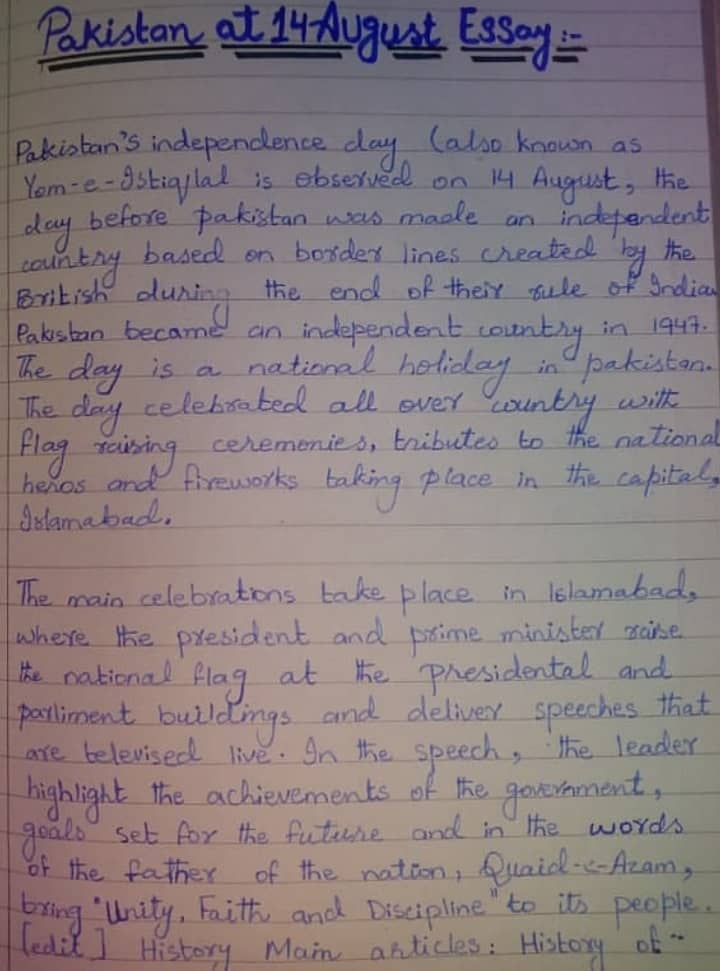 Pakistan at 14 August Essay :-
Pakistan's independence day (also known as
Yom-e-Istiqlal is observed on 14 August, the
day before pakistan was made an independent
country based on border lines created by the
British during the end of their rule of India
Pakistan became an independent country in 1947.
The day is a national holiday in pakistan.
The day celebrated all over country with
flag raising ceremonies, tributes to the national
heros and fireworks taking place in the capital,
Islamabad.
The main celebrations take place in Islamabad,
where the president and prime minister raise
the national flag at the presidental and
parliment buildings and deliver speeches that
are televised live. In the speech, the leader
highlight the achievements of the government,
goals set for the future and in the words
of the father of the nation, Quaid-e-Azam,
bring "Unity, Faith and Discipline" to its people.
[edit] History Main articles: History of